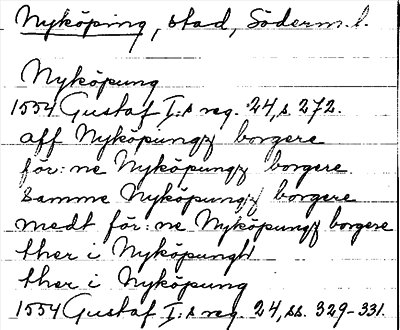 Nyköping, stad, Söderm.l.
Nyköpung
1554 Gustaf I:s reg. 24, s 272.
aff Nyköpungz borgere
för:ne Nyköpungz borgere
Samme Nyköpungz borgere
medt för:ne Nyköpungz borgere
ther i Nyköpungh
ther i Nyköpung
1554 Gustaf I:s reg. 24, ss. 329-331.